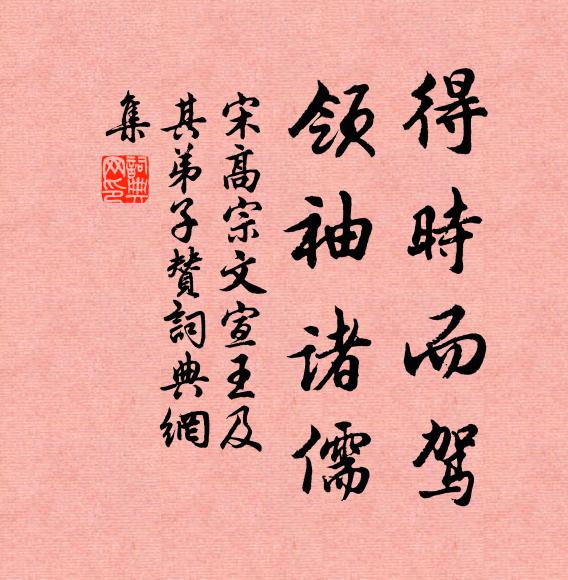 得時而驾
领袖诸儒
宋高宗文宣王及
其弟子贊詞典網
集
詞典
网印